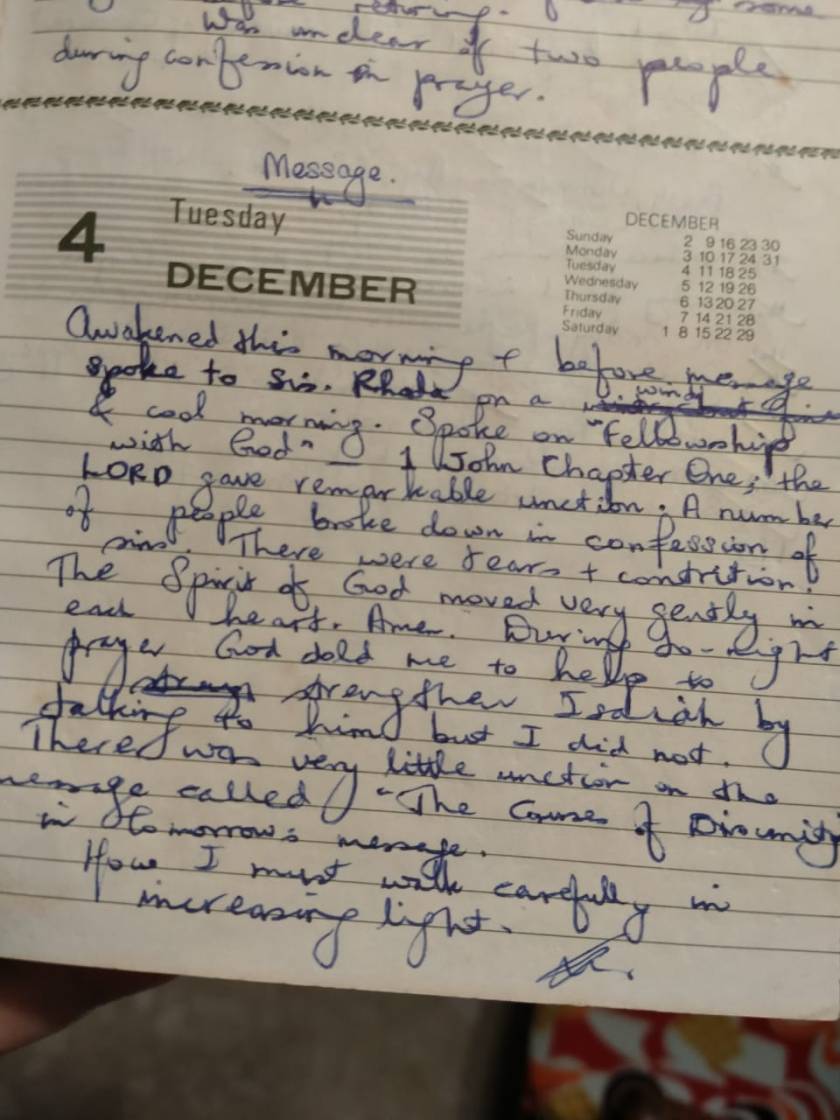 returning. some
was unclear of two people
during confession in prayer.
Message.
4 Tuesday
DECEMBER
DECEMBER
Sunday 2 9 16 23 30
Monday 3 10 17 24 31
Tuesday 4 11 18 25
Wednesday 5 12 19 26
Thursday 6 13 20 27
Friday 7 14 21 28
Saturday 1 8 15 22 29
Awakened this morning + before message
spoke to Sis. Rhoda on a windy
& cool morning. Spoke on "Fellowship
with God" - 1 John Chapter One; the
LORD gave remarkable unction. A number
of people broke down in confession of
sins. There were tears + contrition.
The Spirit of God moved very gently in
each heart. Amen. During to-night
prayer God told me to help to
strengthen Isaiah by
talking to him but I did not.
There was very little unction on the
message called "The Causes of Disunity
in tomorrow's message.
How I must walk carefully in
increasing light.